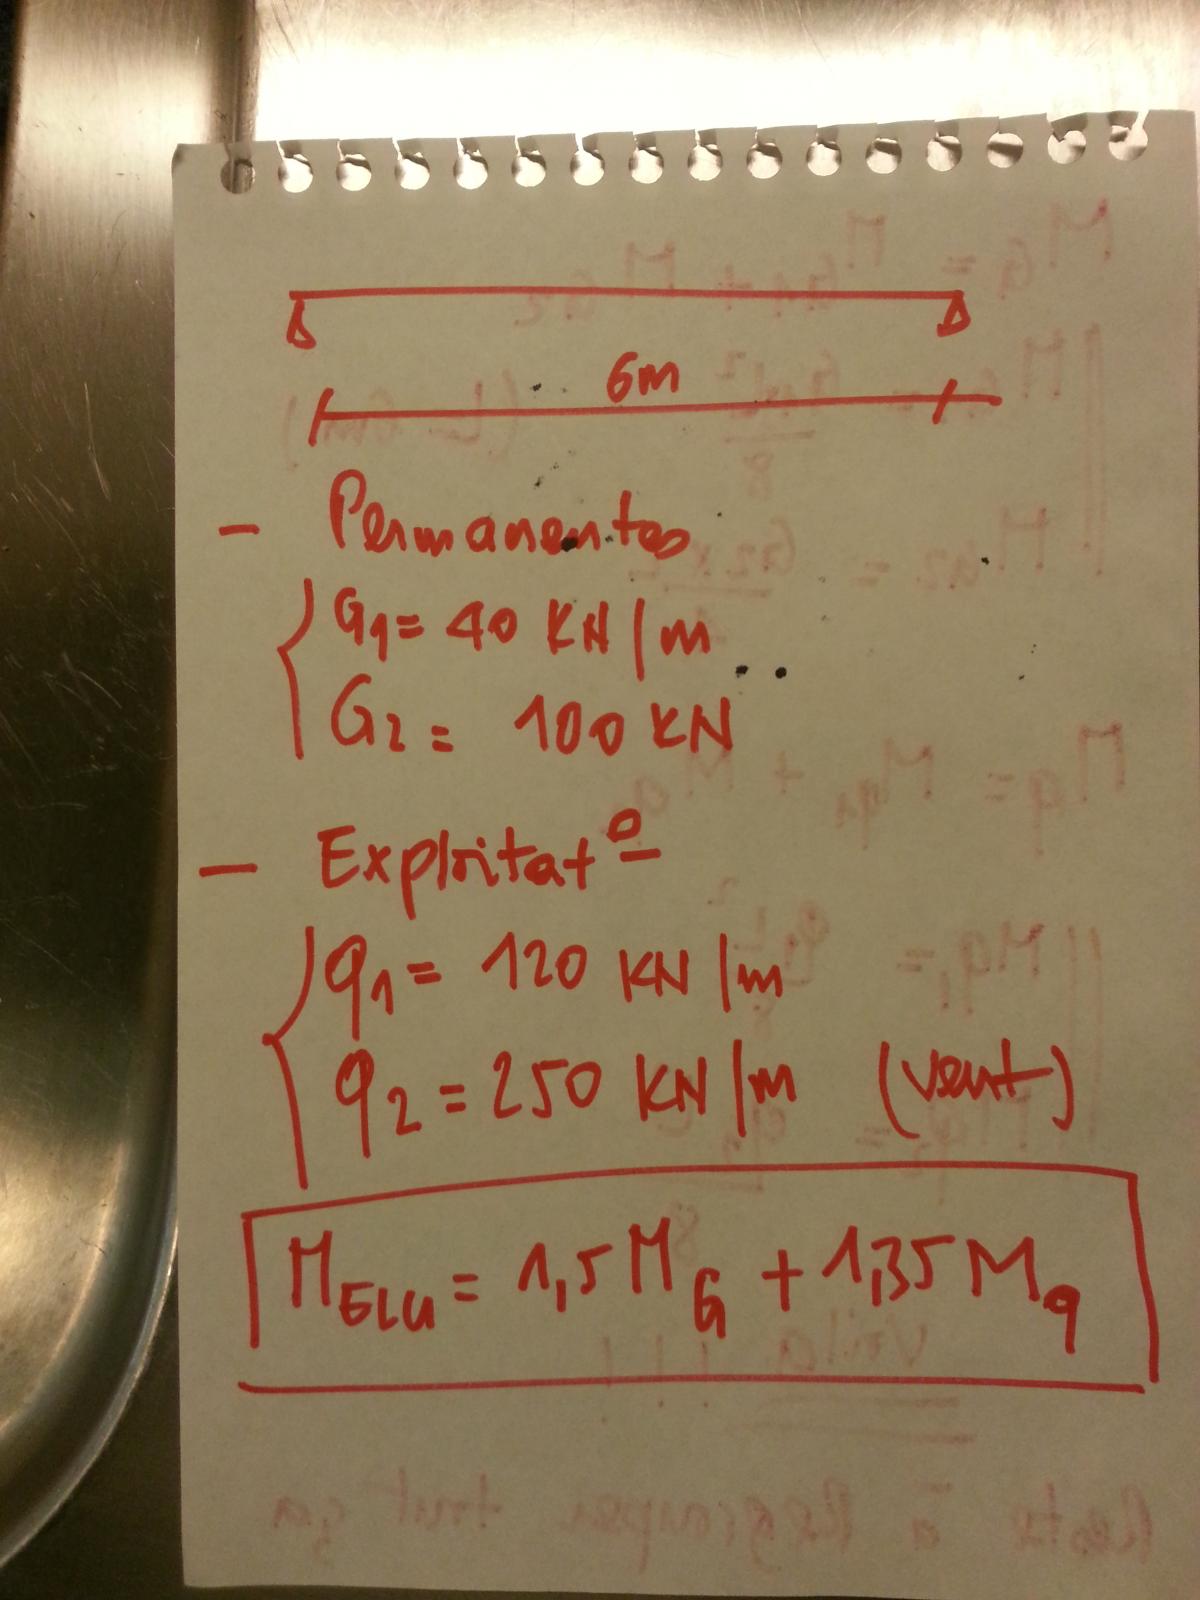 6m
- Permanentes
G1 = 40 KN/m
G2 = 100 KN
- Exploitat°
q1 = 120 KN/m
q2 = 250 KN/m (vent)
MELU = 1,5 MG + 1,35 Mq